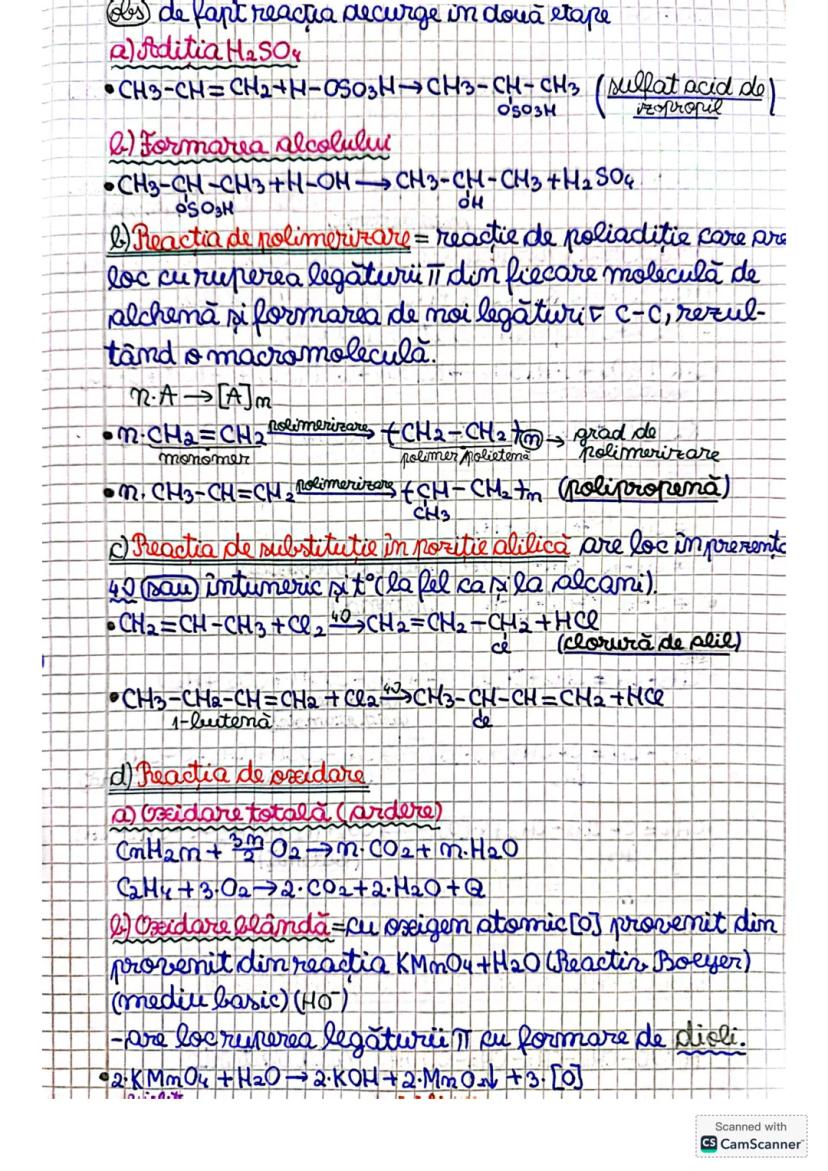 obs de fapt reacția decurge în două etape
a) Aditia H2SO4
• CH3-CH=CH2+H-OSO3H→CH3-CH-CH3 (sulfat acid de
OSO3H izopropil)
b) Formarea alcolului
• CH3-CH-CH3+H-OH→CH3-CH-CH3+H2SO4
OSO3H OH
b) Reactia de polimerizare = reacție de poliadiție care are
loc cu ruperea legăturii π din fiecare moleculă de
alchenă și formarea de noi legături σ C-C, rezul-
tând o macromoleculă.
n·A→[A]n
• n·CH2=CH2 polimerizare→ (CH2-CH2)n → grad de
monomer polimer/polietenă polimerizare
• n. CH3-CH=CH2 polimerizare→ (CH-CH2)n (polipropenă)
CH3
c) Reactia de substituție în poziție alilică are loc în prezența
hν sau întuneric și t° (la fel ca și la alcani).
• CH2=CH-CH3+Cl2 hν→ CH2=CH2-CH2+HCl
Cl (clorură de alil)
• CH3-CH2-CH=CH2+Cl2 hν→ CH3-CH-CH=CH2+HCl
1-butenă Cl
d) Reactia de oxidare
a) Oxidare totală (ardere)
CnH2n + 3n/2 O2→n·CO2+n·H2O
C2H4+3·O2→2·CO2+2·H2O+Q
b) Oxidare blândă=cu oxigen atomic [O] provenit din
provenit din reacția KMnO4+H2O (Reactiv Boeyer)
(mediu basic) (HO⁻)
-are loc ruperea legăturii π cu formare de dioli.
• 2·KMnO4+H2O→2·KOH+2·MnO2↓+3·[O]
Scanned with
CS CamScanner